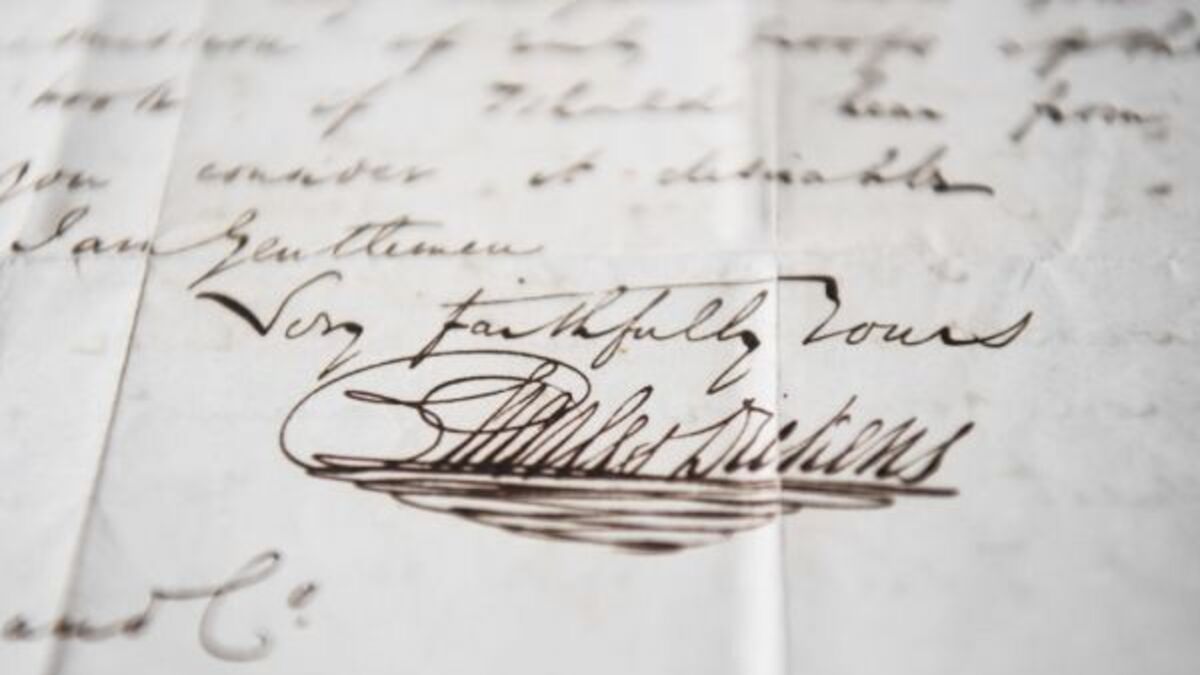 of
of I should hear from
you consider it desirable
I am Gentlemen
Very faithfully Yours
Charles Dickens
and Co